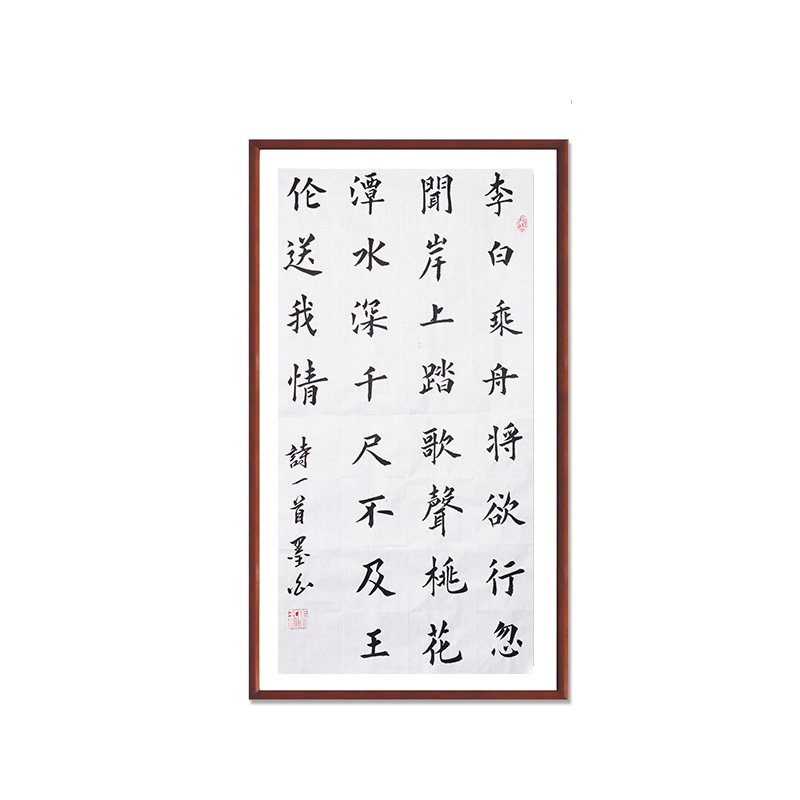 李白乘舟将欲行忽
聞岸上踏歌聲桃花
潭水深千尺不及王
伦送我情
詩一首墨